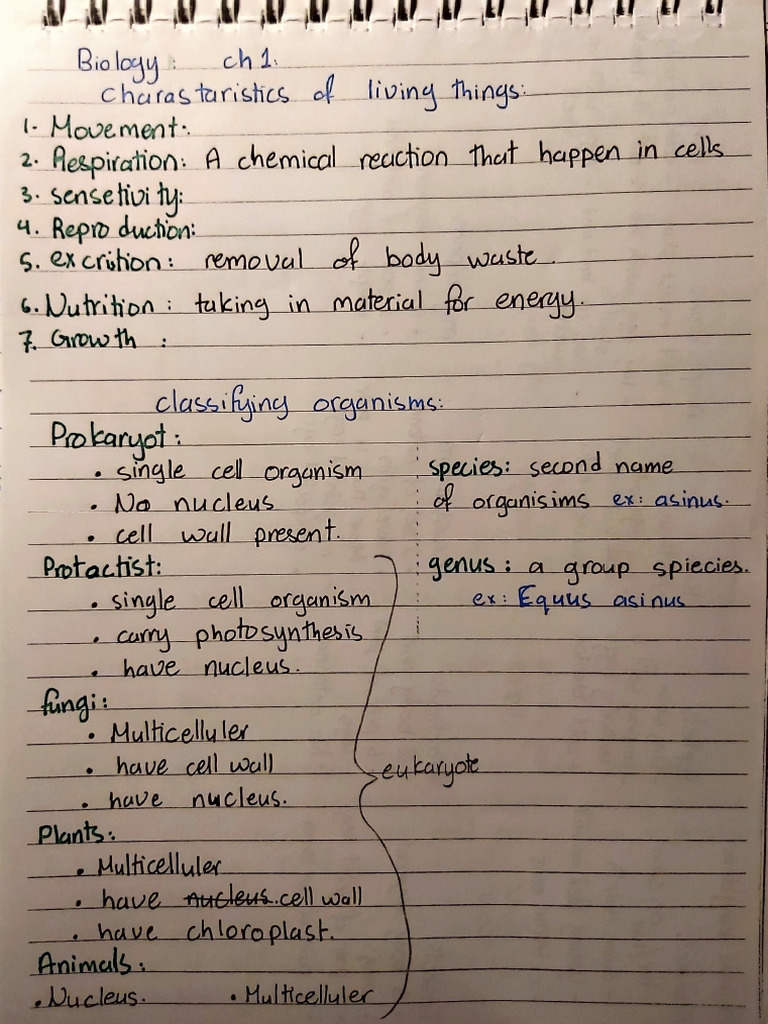 Biology: ch 1:
Charastaristics of living things:
1. Movement:
2. Respiration: A chemical reaction that happen in cells
3. sensetivity:
4. Reproduction:
5. excrition: removal of body waste.
6. Nutrition: taking in material for energy.
7. Growth :
classifying organisms:
Prokaryot:
• single cell organism
• No nucleus
• cell wall present.
species: second name
of organisims ex: asinus.
genus: a group spiecies.
ex: Equus asinus
Protactist:
• single cell organism
• carry photosynthesis
• have nucleus.
fungi:
• Multicelluler
• have cell wall
• have nucleus.
Plants:
• Multicelluler
• have nucleus. cell wall
• have chloroplast.
Animals:
• Nucleus. • Multicelluler
eukaryote